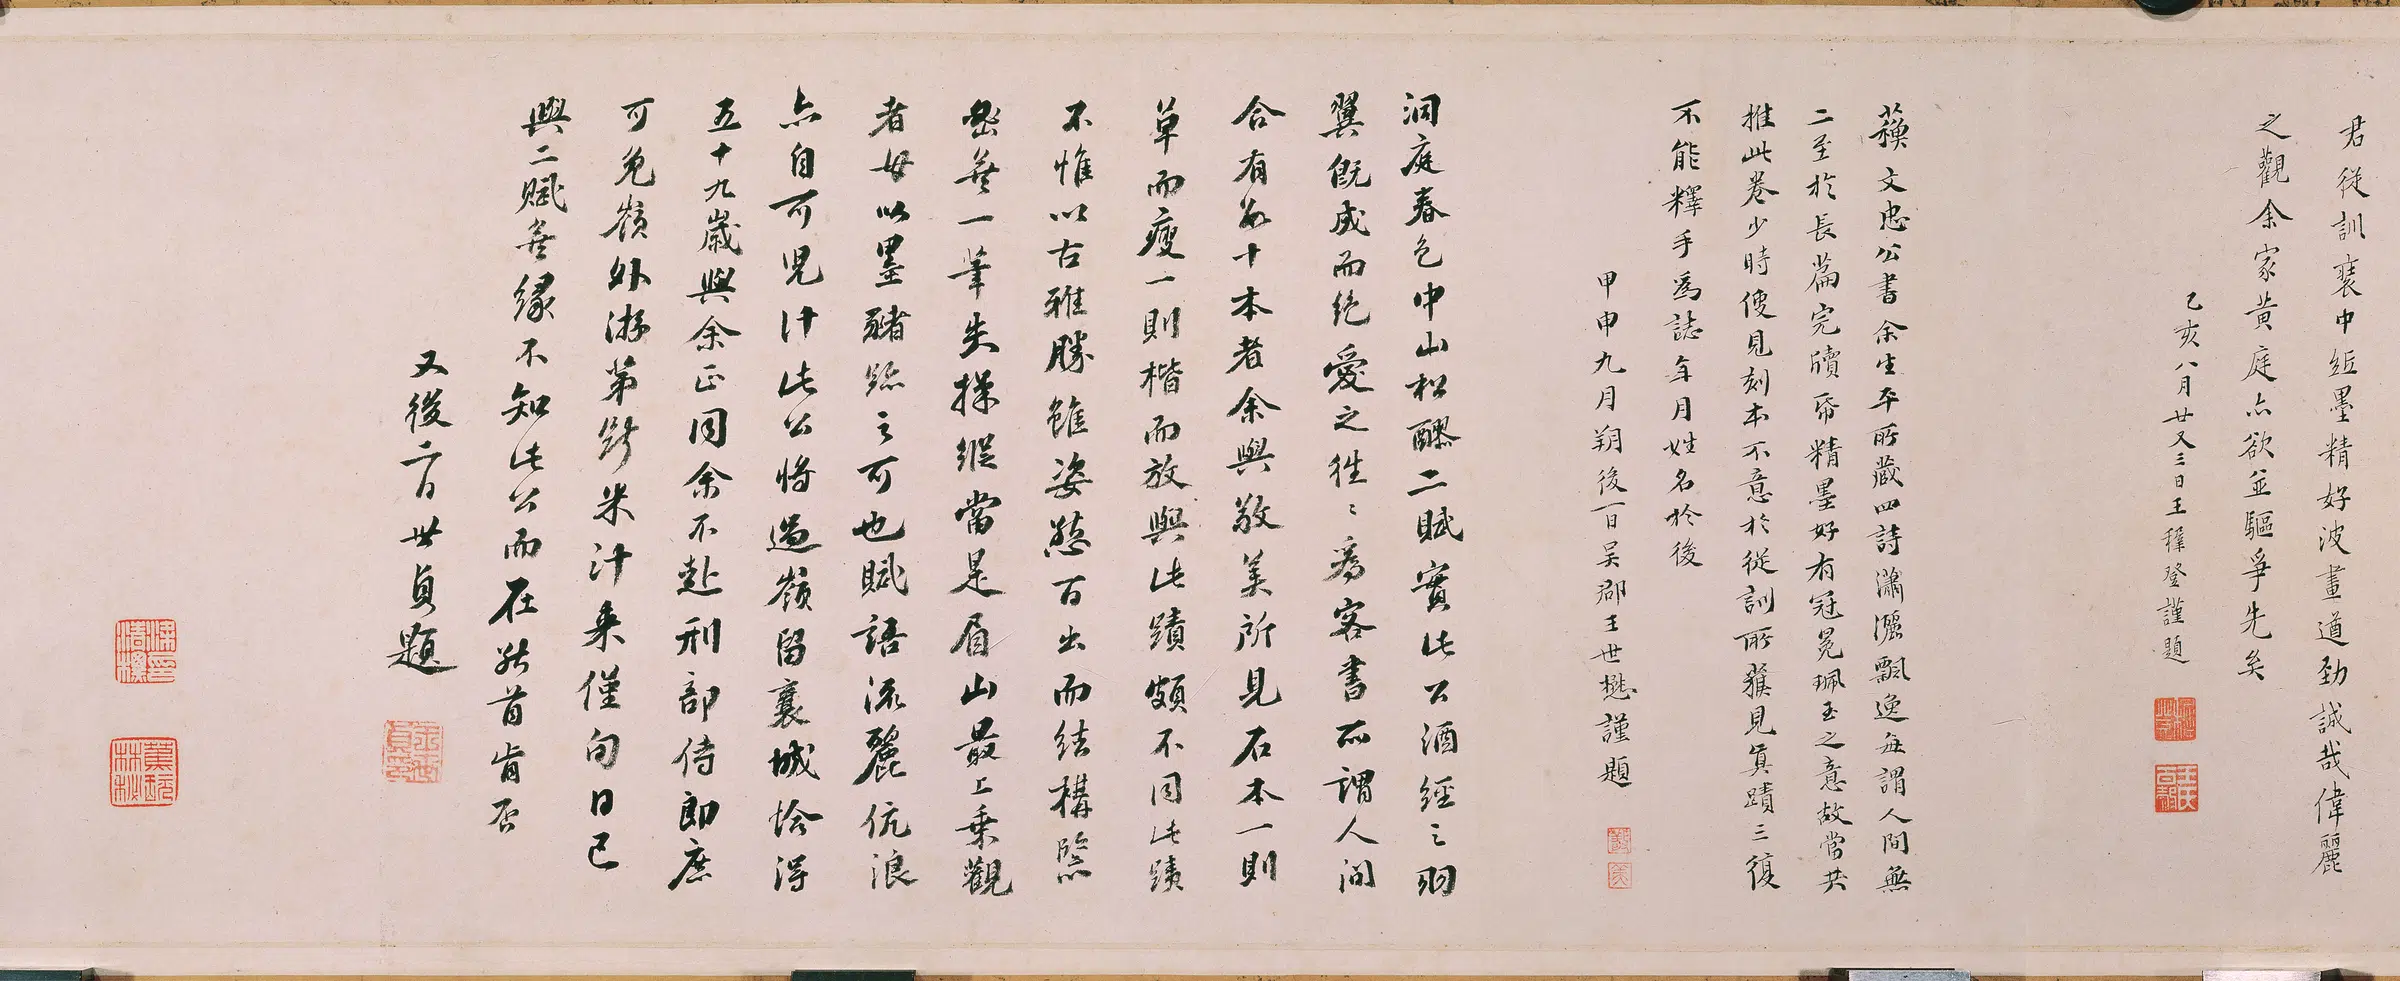 君從訓裘中紙墨精好波畫遒勁誠哉偉麗
之觀余家黃庭亦欲並驅爭先矣
乙亥八月廿又三日王穉登謹題
蘇文忠公書余生平所藏四詩瀟灑飄逸每謂人間無
二至於長篇完牘帋精墨好有冠冕珮玉之意故當共
推此卷少時便見刻本不意於從訓所獲見真蹟三復
不能釋手為誌年月姓名於後
甲申九月朔後一日吳郡王世懋謹題
洞庭春色中山松醪二賦實此公酒經之羽
翼既成而絕愛之往往為客書所謂人間
合有數十本者余與敬美所見石本一則
草而瘦一則楷而放與此蹟頗不同此蹟
不惟以古雅勝雖姿態百出而結構緊
密無一筆失操縱當是眉山最上乘觀
者毋以墨豬跡之可也賦語流麗伉浪
亦自可兒計此公將過嶺留襄城恰得
五十九歲與余正同余不赴刑部侍郎庶
可免嶺外游第斷米汁來僅旬日已
與二賦無緣不知此公而在能首肯否
又後二日世貞題